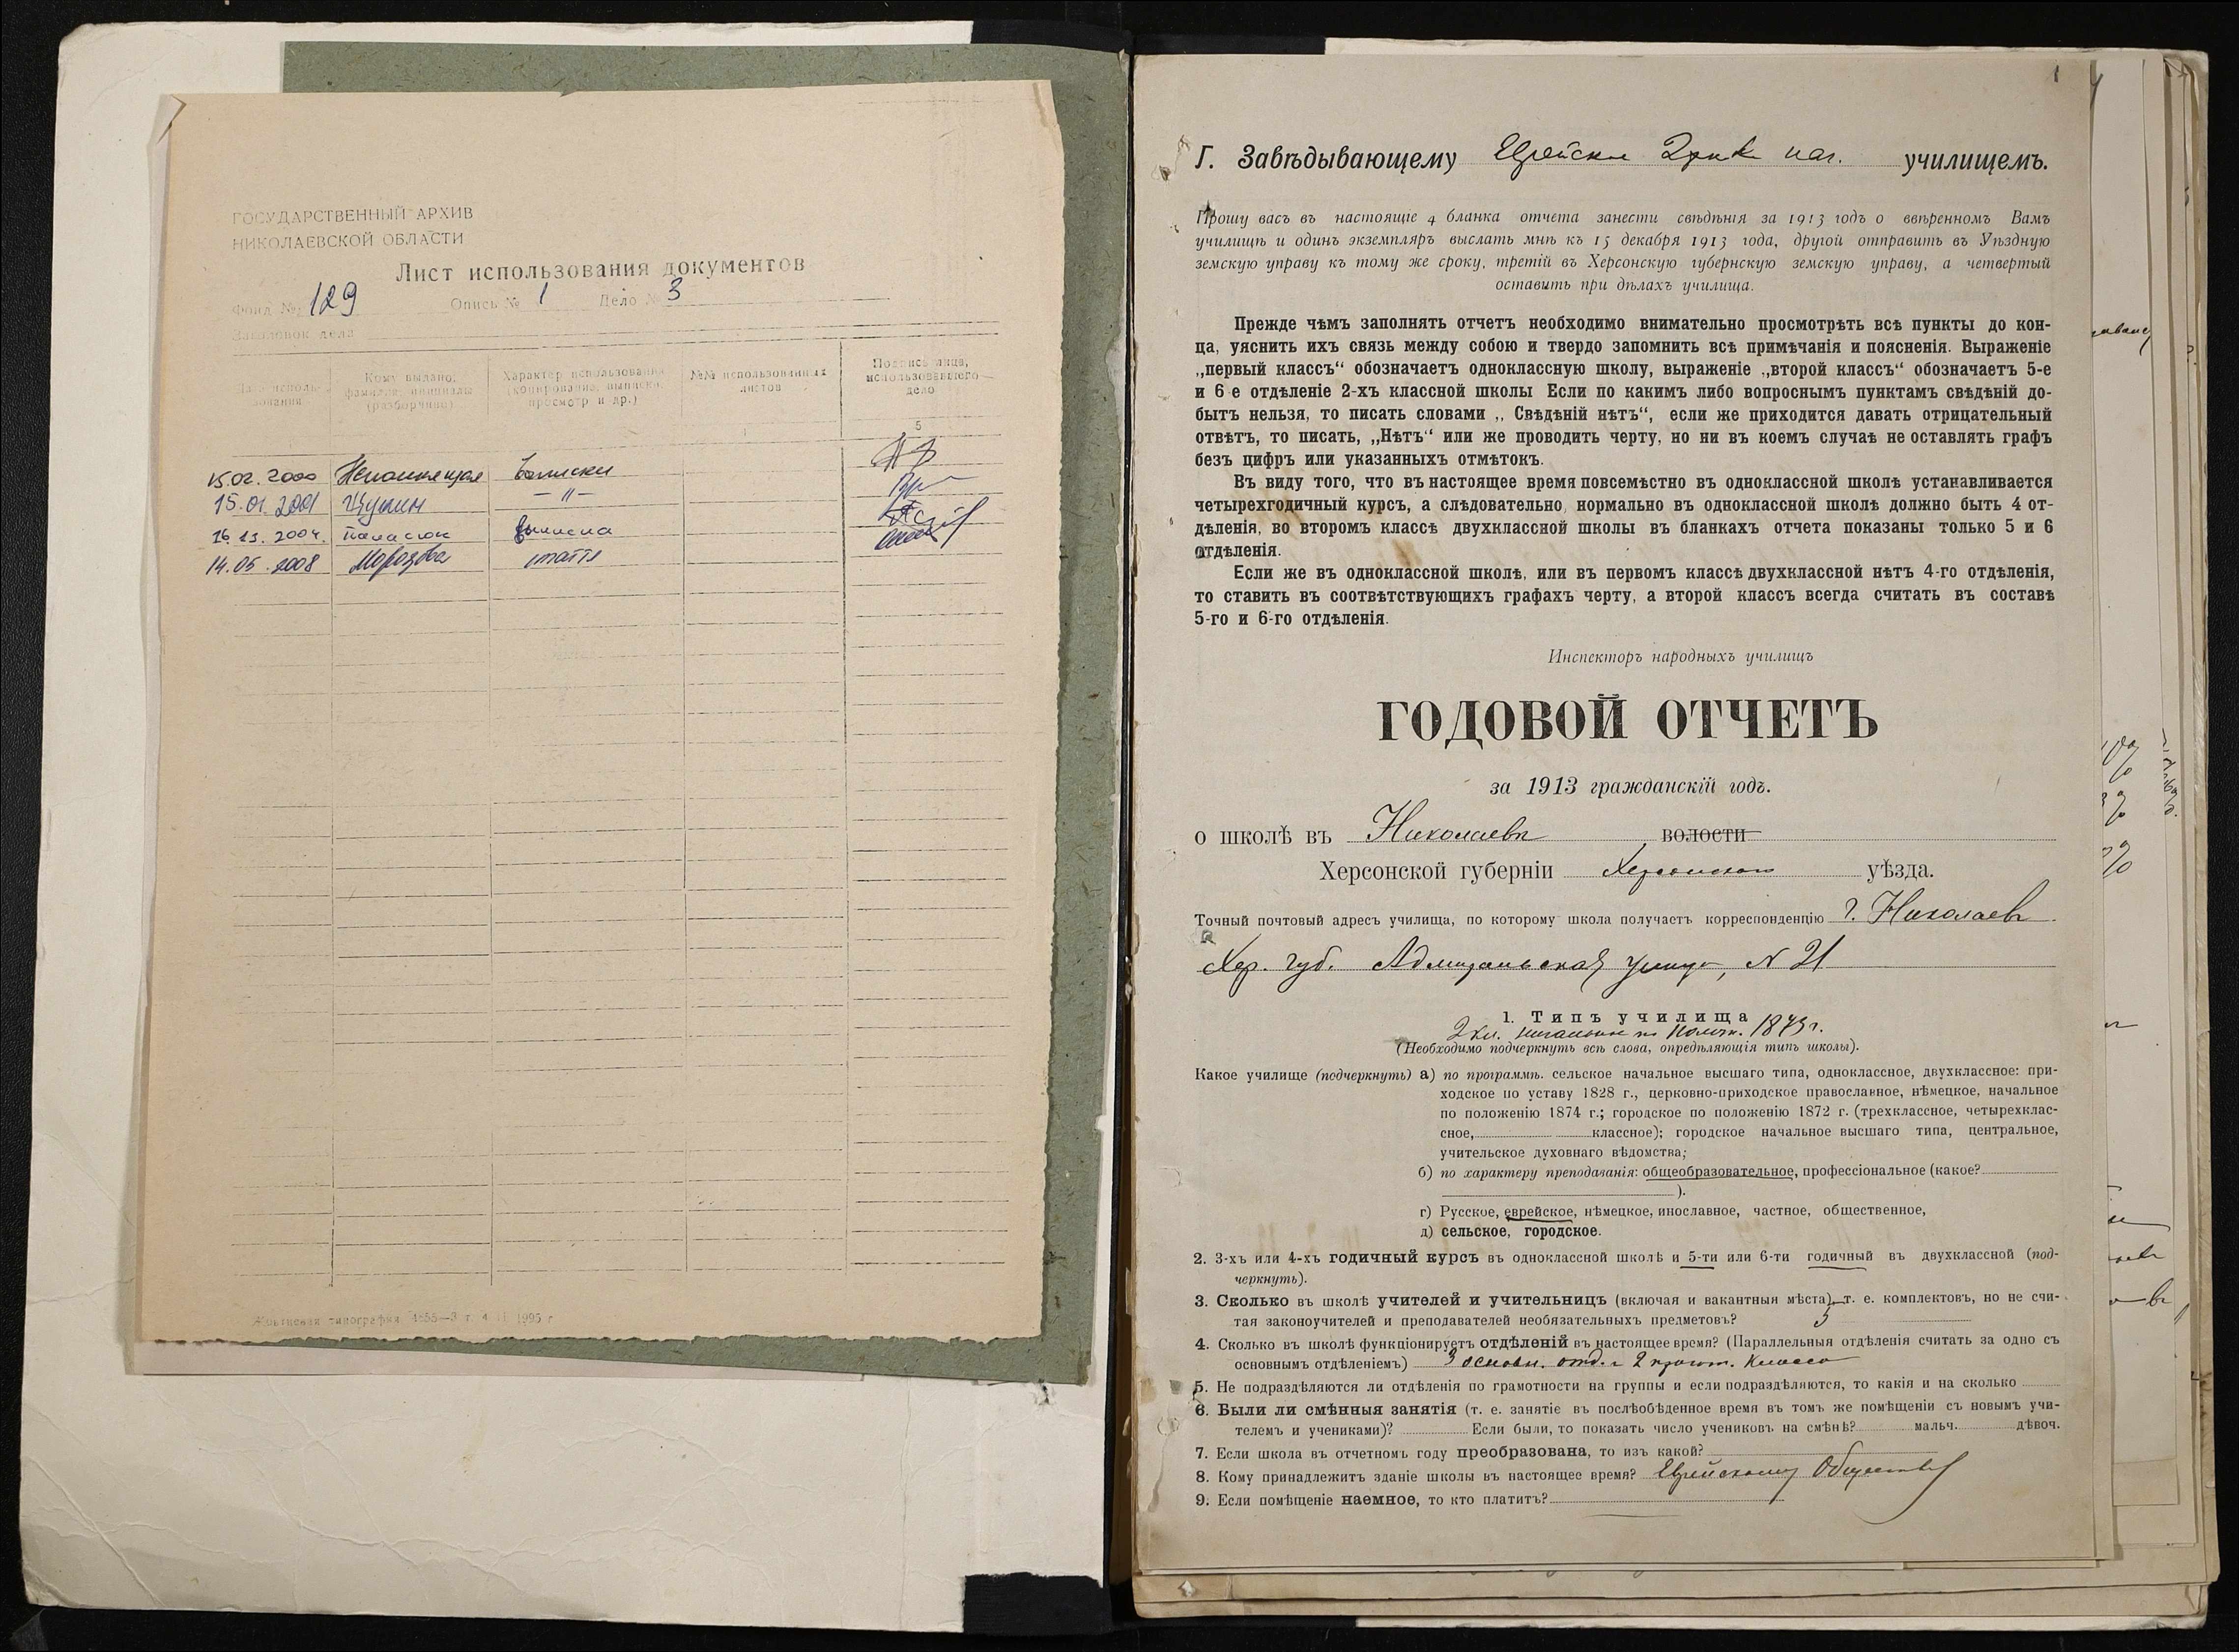 ГОСУДАРСТВЕННЫЙ АРХИВ
НИКОЛАЕВСКОЙ ОБЛАСТИ
Лист использования документов
Фонд № 129 Опись № 1 Дело № 3
Заголовок дела
Кому выдано, фамилия, инициалы (разборчиво)
Характер использования (копирование, выписки, просмотр и др.)
№№ использованных листов
Подпись лица, использовавшего дело
5
15.02.2000
15.01.2001 Щукин — 〃 —
2004. Панасюк выписка
14.05.2008 Морозова статья
типография 1995 г
1
Г. Завѣдывающему Еврейск нач. училищемъ.
Прошу васъ въ настоящіе 4 бланка отчета занести свѣдѣнія за 1913 годъ о ввѣренномъ Вамъ
училищѣ и одинъ экземпляръ выслать мнѣ къ 15 декабря 1913 года, другой отправить въ Уѣздную
земскую управу къ тому же сроку, третій въ Херсонскую губернскую земскую управу, а четвертый
оставить при дѣлахъ училища.
Прежде чѣмъ заполнять отчетъ необходимо внимательно просмотрѣть всѣ пункты до кон-
ца, уяснить ихъ связь между собою и твердо запомнить всѣ примѣчанія и поясненія. Выраженіе
„первый классъ“ обозначаетъ одноклассную школу, выраженіе „второй классъ“ обозначаетъ 5-е
и 6 е отдѣленіе 2-хъ классной школы Если по какимъ либо вопроснымъ пунктамъ свѣдѣній до-
бытъ нельзя, то писать словами „ Свѣдѣній нѣтъ“, если же приходится давать отрицательный
отвѣтъ, то писать, „Нѣтъ“ или же проводить черту, но ни въ коемъ случаѣ не оставлять графъ
безъ цифръ или указанныхъ отмѣтокъ.
Въ виду того, что въ настоящее время повсемѣстно въ одноклассной школѣ устанавливается
четырехгодичный курсъ, а слѣдовательно нормально въ одноклассной школѣ должно быть 4 от-
дѣленія, во второмъ классѣ двухклассной школы въ бланкахъ отчета показаны только 5 и 6
отдѣленія.
Если же въ одноклассной школѣ, или въ первомъ классѣ двухклассной нѣтъ 4-го отдѣленія,
то ставить въ соотвѣтствующихъ графахъ черту, а второй классъ всегда считать въ составѣ
5-го и 6-го отдѣленія.
Инспекторъ народныхъ училищъ
ГОДОВОЙ ОТЧЕТЪ
за 1913 гражданскій годъ.
о школѣ въ Николаевѣ волости
Херсонской губерніи Херсонскаго уѣзда.
Точный почтовый адресъ училища, по которому школа получаетъ корреспонденцію г. Николаевъ
Хер. губ. Адмиральская улица, N 21
1. Типъ училища
2 кл. начальное по Полож. 1873 г.
(Необходимо подчеркнуть всѣ слова, опредѣляющія типъ школы).
Какое училище (подчеркнуть) а) по программѣ. сельское начальное высшаго типа, одноклассное, двухклассное: при-
ходское по уставу 1828 г., церковно-приходское православное, нѣмецкое, начальное
по положенію 1874 г.; городское по положенію 1872 г. (трехклассное, четырехклас-
сное, классное); городское начальное высшаго типа, центральное,
учительское духовнаго вѣдомства;
б) по характеру преподаванія: общеобразовательное, профессіональное (какое?
).
г) Русское, еврейское, нѣмецкое, инославное, частное, общественное,
д) сельское, городское.
2. 3-хъ или 4-хъ годичный курсъ въ одноклассной школѣ и 5-ти или 6-ти годичный въ двухклассной (под-
черкнуть).
3. Сколько въ школѣ учителей и учительницъ (включая и вакантныя мѣста), т. е. комплектовъ, но не счи-
тая законоучителей и преподавателей необязательныхъ предметовъ? 5
4. Сколько въ школѣ функціонируетъ отдѣленій въ настоящее время? (Параллельныя отдѣленія считать за одно съ
основнымъ отдѣленіемъ) 3 основн. отд. и 2 пригот. класса
5. Не подраздѣляются ли отдѣленія по грамотности на группы и если подраздѣляются, то какія и на сколько
6. Были ли смѣнныя занятія (т. е. занятіе въ послѣобѣденное время въ томъ же помѣщеніи съ новымъ учи-
телемъ и учениками)? Если были, то показать число учениковъ на смѣнѣ? мальч. дѣвоч.
7. Если школа въ отчетномъ году преобразована, то изъ какой?
8. Кому принадлежитъ зданіе школы въ настоящее время? Еврейскому Обществу
9. Если помѣщеніе наемное, то кто платитъ?